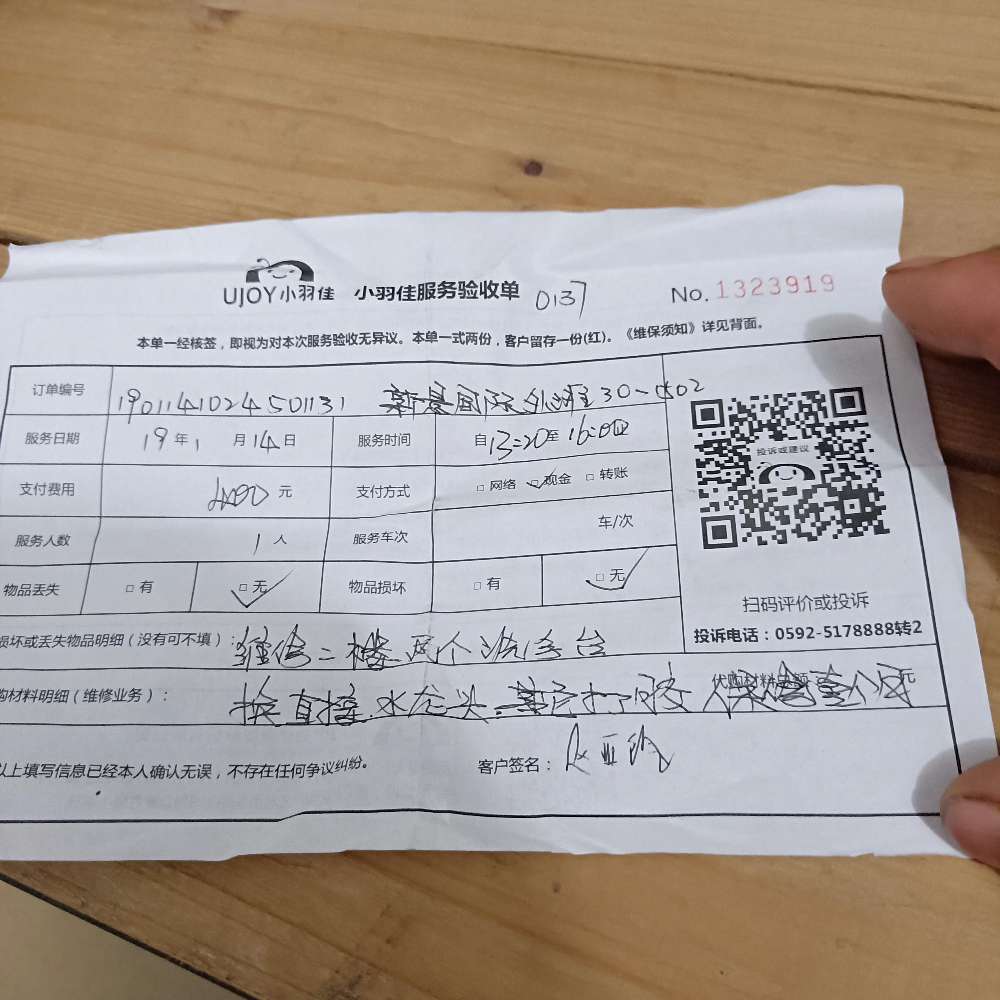 UJOY小羽佳 小羽佳服务验收单 0137 No.1323919
本单一经核签，即视为对本次服务验收无异议。本单一式两份，客户留存一份(红)。《维保须知》详见背面。
订单编号 1901141024501131 新景国际外滩30-
服务日期 19年1月14日 服务时间 自13:20至16:00
支付费用 元 支付方式 □网络 □现金 □转账
服务人数 1人 服务车次 车/次
物品丢失 □有 □无 物品损坏 □有 □无
投诉或建议
扫码评价或投诉
投诉电话：0592-5178888转2
损坏或丢失物品明细（没有可不填）： 维修二楼两个洗手台
购材料明细（维修业务）： 换直接 水龙头 打胶 代购材料总额： 元
以上填写信息已经本人确认无误，不存在任何争议纠纷。 客户签名：